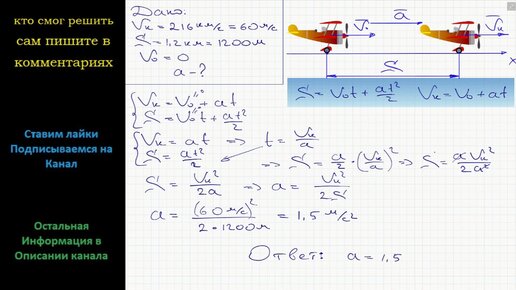 кто смог решить
сам пишите в
комментариях
Ставим лайки
Подписываемся на
Канал
Остальная
Информация в
Описании канала
Дано:
Vк = 216 км/с = 60 м/с
S = 1,2 км = 1200 м
V₀ = 0
a - ?
V₀
a
Vк
S
x
S = V₀t + at²/2 Vк = V₀ + at
Vк = V₀ + at
S = V₀t + at²/2
Vк = at => t = Vк/a
S = at²/2 => S = a/2 · (Vк/a)² => S = aVк²/2a²
S = Vк²/2a => a = Vк²/2S
a = (60 м/с)²/2·1200м = 1,5 м/с²
Ответ: a = 1,5